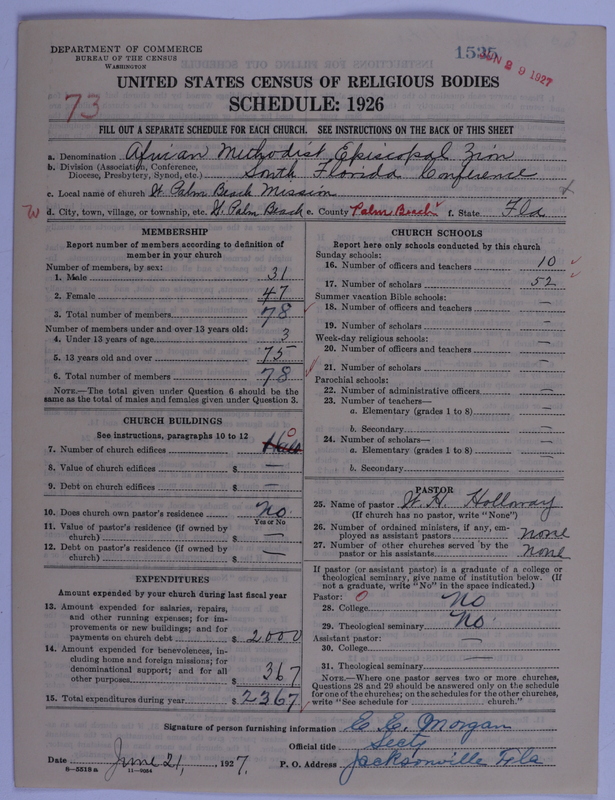 DEPARTMENT OF COMMERCE
BUREAU OF THE CENSUS
WASHINGTON
1535
JUN 29 1927
UNITED STATES CENSUS OF RELIGIOUS BODIES
73
SCHEDULE: 1926
FILL OUT A SEPARATE SCHEDULE FOR EACH CHURCH. SEE INSTRUCTIONS ON THE BACK OF THIS SHEET
a. Denomination African Methodist Episcopal Zion
b. Division (Association, Conference, Diocese, Presbytery, Synod, etc.) South Florida Conference
c. Local name of church W. Palm Beach Mission
d. City, town, village, or township, etc. W. Palm Beach e. County Palm Beach f. State Fla
MEMBERSHIP
Report number of members according to definition of
member in your church
Number of members, by sex:
1. Male 31
2. Female 47
3. Total number of members 78
Number of members under and over 13 years old:
4. Under 13 years of age 3
5. 13 years old and over 75
6. Total number of members 78
NOTE.—The total given under Question 6 should be the
same as the total of males and females given under Question 3.
CHURCH BUILDINGS
See instructions, paragraphs 10 to 12
7. Number of church edifices 0
8. Value of church edifices $ —
9. Debt on church edifices $ —
10. Does church own pastor's residence No
Yes or No
11. Value of pastor's residence (if owned by
church) $ —
12. Debt on pastor's residence (if owned by
church) $ —
EXPENDITURES
Amount expended by your church during last fiscal year
13. Amount expended for salaries, repairs,
and other running expenses; for im-
provements or new buildings; and for
payments on church debt $ 2000
14. Amount expended for benevolences, in-
cluding home and foreign missions; for
denominational support; and for all
other purposes $ 367
15. Total expenditures during year $ 2367
CHURCH SCHOOLS
Report here only schools conducted by this church
Sunday schools:
16. Number of officers and teachers 10
17. Number of scholars 52
Summer vacation Bible schools:
18. Number of officers and teachers —
19. Number of scholars —
Week-day religious schools:
20. Number of officers and teachers —
21. Number of scholars —
Parochial schools:
22. Number of administrative officers —
23. Number of teachers—
a. Elementary (grades 1 to 8) —
b. Secondary —
24. Number of scholars—
a. Elementary (grades 1 to 8) —
b. Secondary —
PASTOR
25. Name of pastor W. H. Holloway
(If church has no pastor, write "None")
26. Number of ordained ministers, if any, em-
ployed as assistant pastors none
27. Number of other churches served by the
pastor or his assistants None
If pastor (or assistant pastor) is a graduate of a college or
theological seminary, give name of institution below. (If
not a graduate, write "No" in the space indicated.)
Pastor: 0
28. College No
29. Theological seminary No.
Assistant pastor:
30. College —
31. Theological seminary —
NOTE.—Where one pastor serves two or more churches,
Questions 28 and 29 should be answered only on the schedule
for one of the churches; on the schedules for the other churches,
write "See schedule for church."
Signature of person furnishing information C. E. Morgan
Official title Secty
Date June 21, 1927. P. O. Address Jacksonville Fla
8—5518 a 11—9054